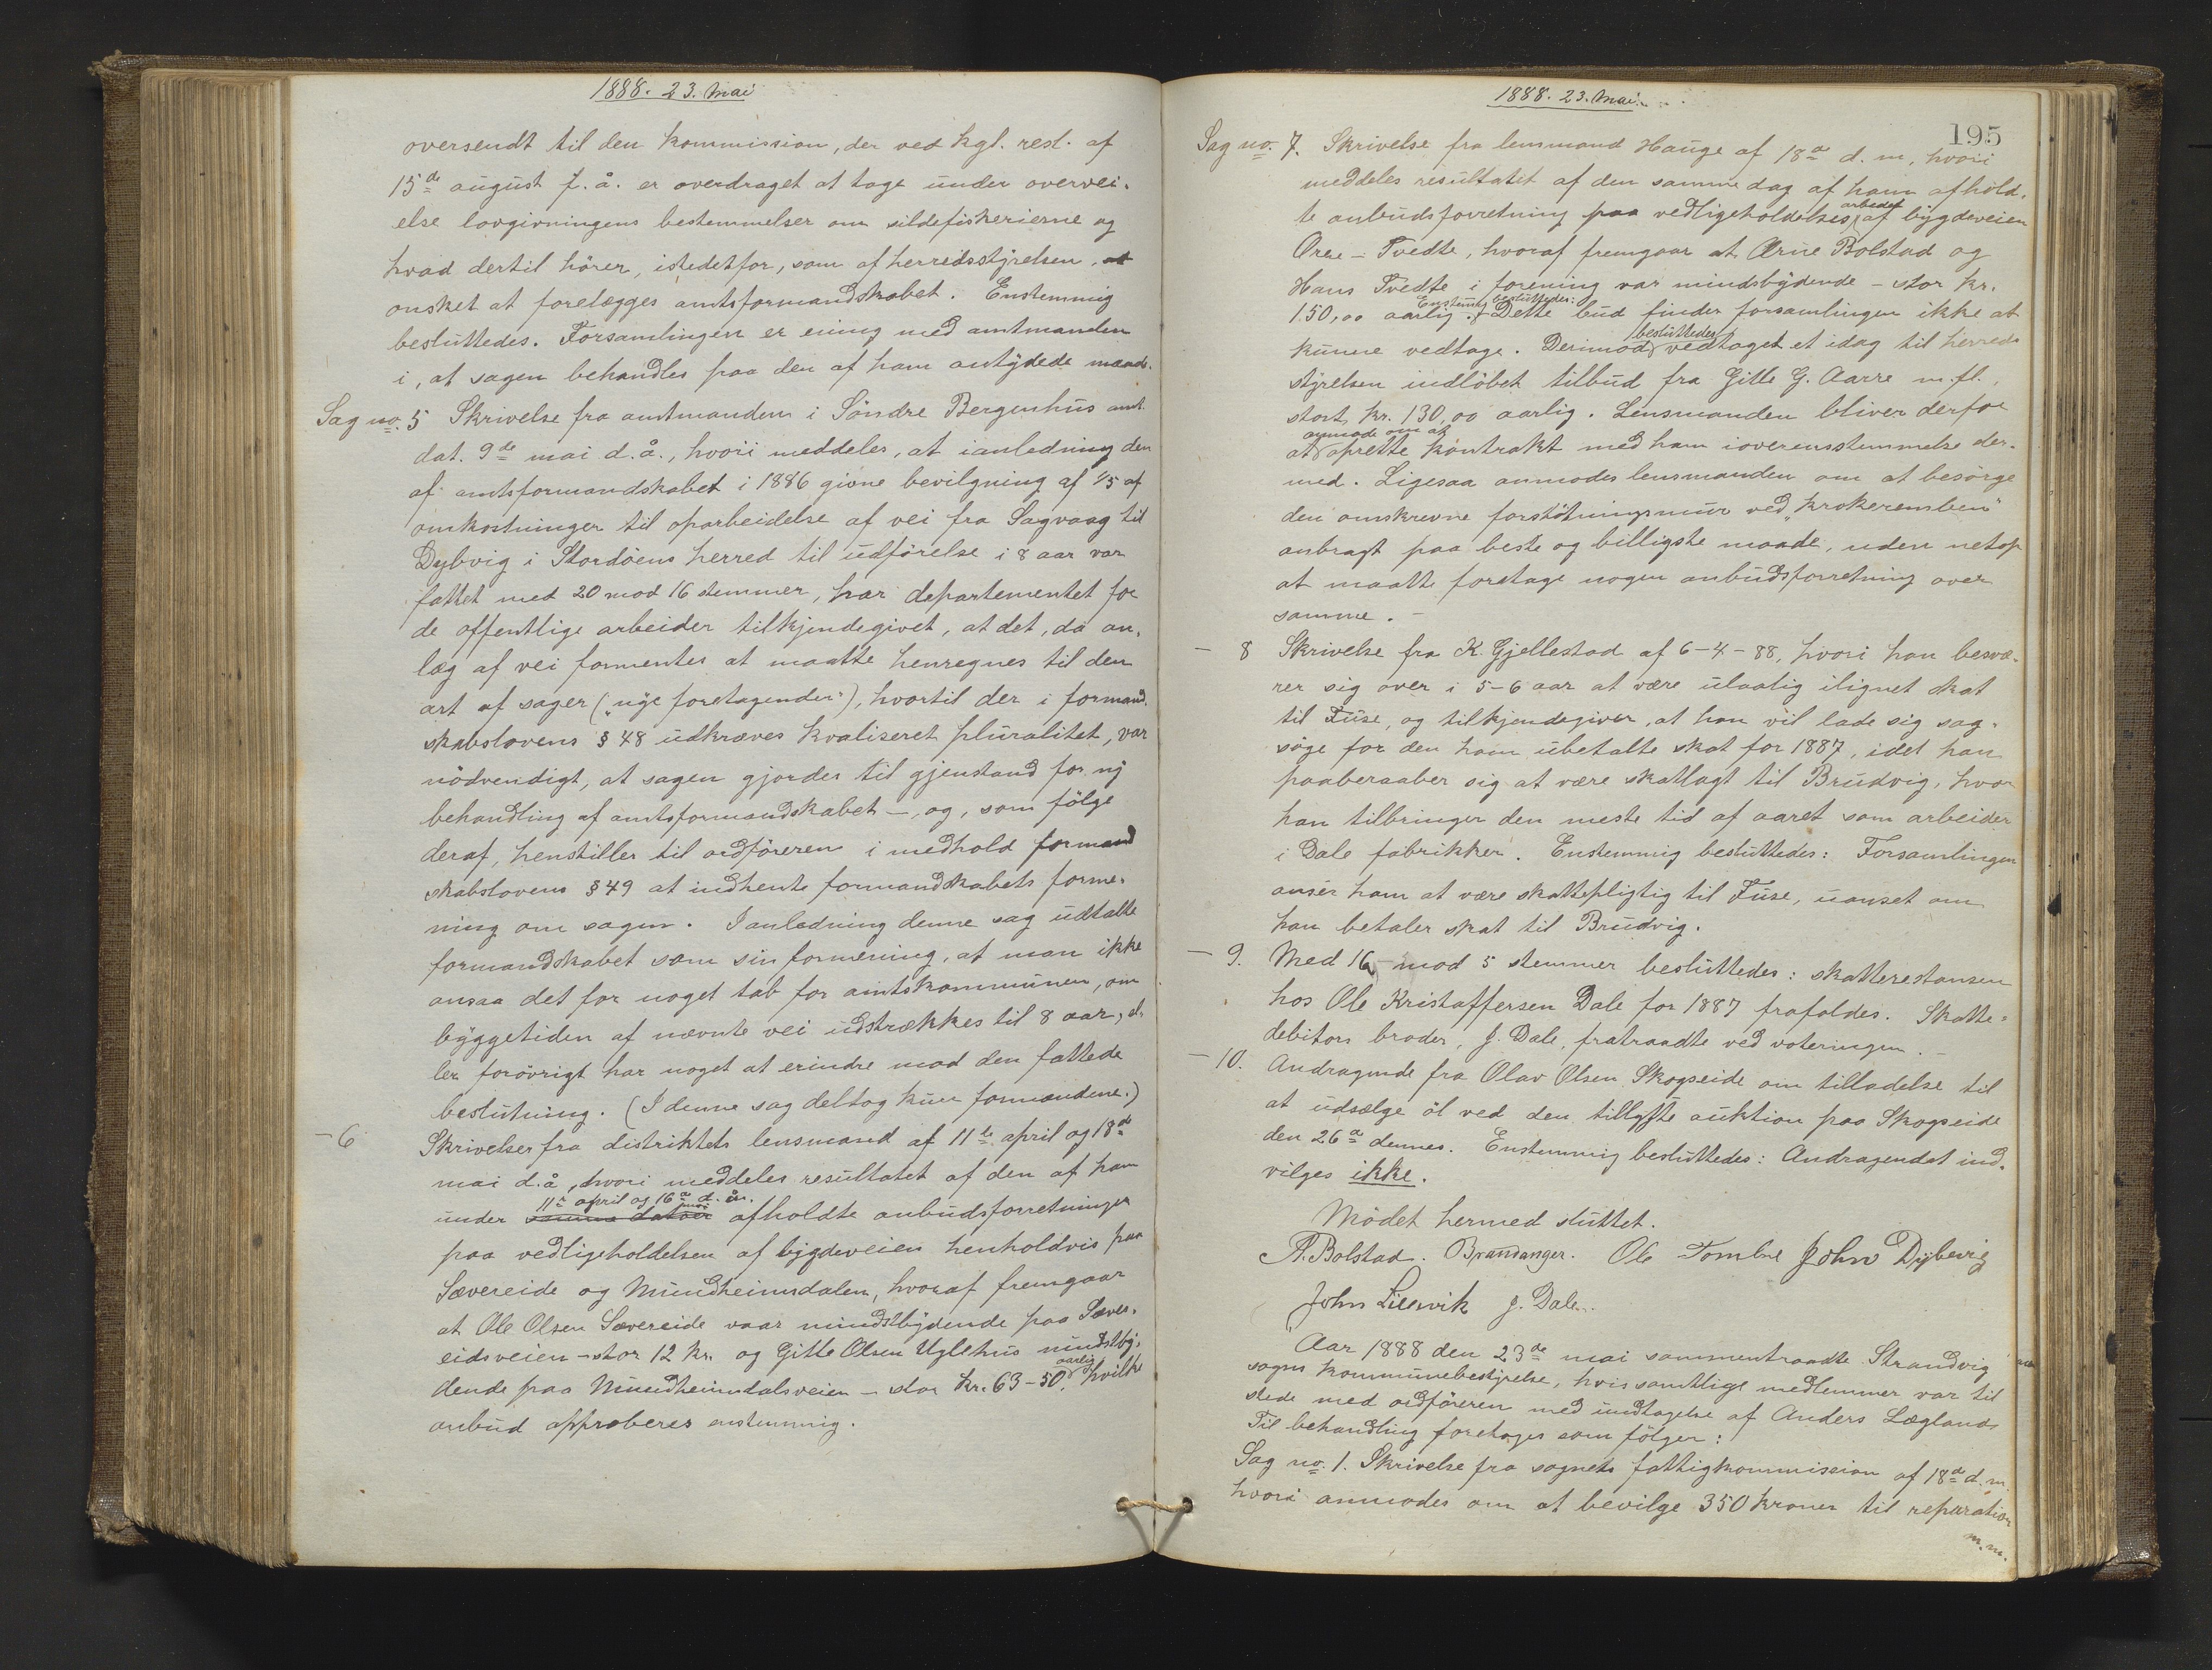 1888. 23. Mai
oversendt til den kommission, der ved kgl. resl. af
15de august f. å. er overdraget at tage under overvei-
else lovgivningens bestemmelser om sildefiskerierne og
hvad dertil hörer, istedetfor, som af herredsstÿrelsen,
önsket at forelægges amtsformandskabet. Enstemmig
beslüttedes. Forsamlingen er enig med amtmanden
i, at sagen behandles paa den af ham antÿdede maade.
Sag no. 5 Skrivelse fra amtmanden i Söndre Bergenhüs amt
dat. 9de mai d. å., hvori meddeles, at ianledning den
af amtsformandskabet i 1886 givne bevilgning af 1/5 af
omkostninger til oparbeidelse af vei fra Sagvaag til
Dybvig i Stordöens herred til üdförelse i 8 aar var
fattet med 20 mod 16 stemmer, har departementet for
de offentlige arbeider tilkjendegivet, at det, da an-
læg af vei formentes at maatte henregnes til den
art af sager („nÿe foretagender"), hvortil der i formand
skabslovens § 48 üdkræves kvaliseret plüralitet, var
nödvendigt, at sagen gjordes til gjenstand for nÿ
behandling af amtsformandskabet –, og, som fölge
deraf, henstiller til ordföreren i medhold formand
skabslovens § 49 at indhente formandskabets forme-
ning om sagen. I anledning denne sag üdtalte
formandskabet som sin formening, at man ikke
ansaa det for noget tab for amtskommünen, om
bÿggetiden af nævnte vei üdstrækkes til 8 aar, el-
ler forövrigt har noget at erindre mod den fattede
beslütning. (I denne sag deltog kün formændene.)
– 6 Skrivelser fra distriktets lensmand af 11te april og 18de
mai d. å, hvori meddeles resültatet af den af ham
11te april og 16de mai d. å.
ünder samme datoer afholdte anbüdsforretninger
paa vedligeholdelsen af bÿgdeveien henholdvis paa
Sævereide og Mündheimsdalen, hvoraf fremgaar
at Ole Olsen Sævereide vaar mindstbÿdende paa Sæver-
eidsveien – stor 12 kr. og Gitle Olsen Uglehüs mindstbÿ-
aarlig
dende paa Mündheimdalsveien – stor kr. 63-50. Hvilke
anbüd approberes enstemmig.
1888. 23. Mai.
195
Sag no. 7. Skrivelse fra lensmand Haüge af 18de d. m, hvori
meddeles resültatet af den samme dag af ham afhold-
arbedet
te anbüdsforretning paa vedligeholdelses af bÿgdeveien
Øvre – Tvedte, hvoraf fremgaar at Arne Bolstad og
Hans Tvedte i forening var mindsbÿdende – stor kr.
Enstemig beslüttedes:
150,00 aarlig. Dette büd finder forsamlingen ikke at
beslüttedes
künne vedtage. Derimod vedtaget et idag til herreds
stÿrelsen indlöbet tilbüd fra Gitle G. Aarre m. fl.,
stort kr. 130,00 aarlig. Lensmanden bliver derfor
anmode om at
at oprette kontrakt med ham ioverensstemmelse der-
med. Ligesaa anmodes lensmanden om at besörge
den omskrevne forstötningsmür ved „Krokeremben"
anbragt paa beste og billigste maade, uden netop
at maatte foretage nogen anbüdsforretning over
samme. –
– 8 Skrivelse fra K Gjellestad af 6–4–88, hvori han besvæ-
rer sig over i 5–6 aar at være ülovlig ilignet skat
til Füse, og tilkjendegiver, at han vil lade sig sag-
söge for den ham übetalte skat for 1887, idet han
paaberaaber sig at være skatlagt til Brüdvig, hvor
han tilbringer den meste tid af aaret som arbeider
i Dale fabrikker. Enstemmig beslüttedes: Forsamlingen
anser ham at være skattepligtig til Füse, üanset om
han betaler skat til Brüdvig.
– 9. Med 16 mod 5 stemmer beslüttedes: skatterestansen
hos Ole Kristoffersen Dale for 1887 frafaldes. Skatte-
debitors broder, J. Dale, fratraadte ved voteringen. –
– 10. Andragende fra Olav Olsen Skogseide om tilladelse til
at üdsælge öl ved den tillÿste aüktion paa Skogseide
den 26de dennes. Enstemmig beslüttedes: Andragendet ind-
vilges ikke.
Mödet hermed slüttet.
A. Bolstad. Brandanger. Ole Tombre John Dÿbvig
John Liesvik J. Dale.
Aar 1888 den 23de mai sammentraadte Strandvig
sogns kommünebestÿrelse, hvis samtlige medlemmer var til
stede med ordföreren med ündtagelse af Anders Lægland
Til behandling foretages som fölger:
Sag no. 1. Skrivelse fra sognets fattigkommission af 18de d. m.
hvori anmodes om at bevilge 350 kroner til reparation
m. m.